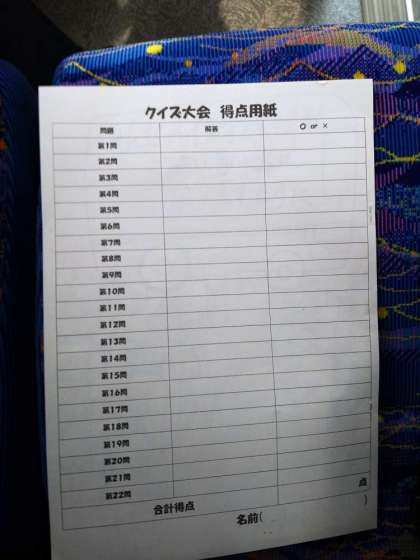 クイズ大会 得点用紙
問題 解答 ○ or ×
第1問
第2問
第3問
第4問
第5問
第6問
第7問
第8問
第9問
第10問
第11問
第12問
第13問
第14問
第15問
第16問
第17問
第18問
第19問
第20問
第21問
第22問
合計得点 点
名前( )